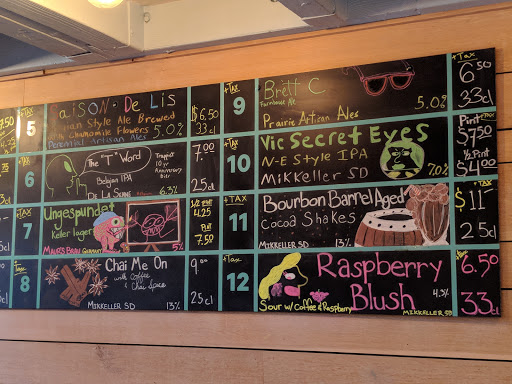 7.50
+TAX
5
aison De Lis
Style Ale Brewed
Chamomile Flowers 5.0%
Perennial Artisan
$6.50
33cl
6
The "T" Word
Belgian IPA
DE LA SENNE
6.3%
7.00
25cl
+TAX
7
Ungespundet
Keller lager
GERMANY
5%
1/2 PINT
4.25
PINT
7.50
+TAX
8
Chai Me On
with Coffee
& Chai Spice
MIKKELLER SD 13%
9.00
25cl
+TAX
9
Brett C
Farmhouse Ale
5.0%
Prairie Artisan Ales
+TAX
6.50
33cl
+TAX
10
Vic Secret Eyes
N-E Style IPA
MIKKELLER SD 7.0%
Pint
$7.50
1/2 Pint
$4.00
+TAX
11
Bourbon Barrel Aged
Cocoa Shakes
MIKKELLER SD 13%
+TAX
$11
25cl
+Tax
12
Raspberry
Blush
4.3%
Sour w/ Coffee & Raspberry
MIKKELLER SD
+Tax
6.50
33cl